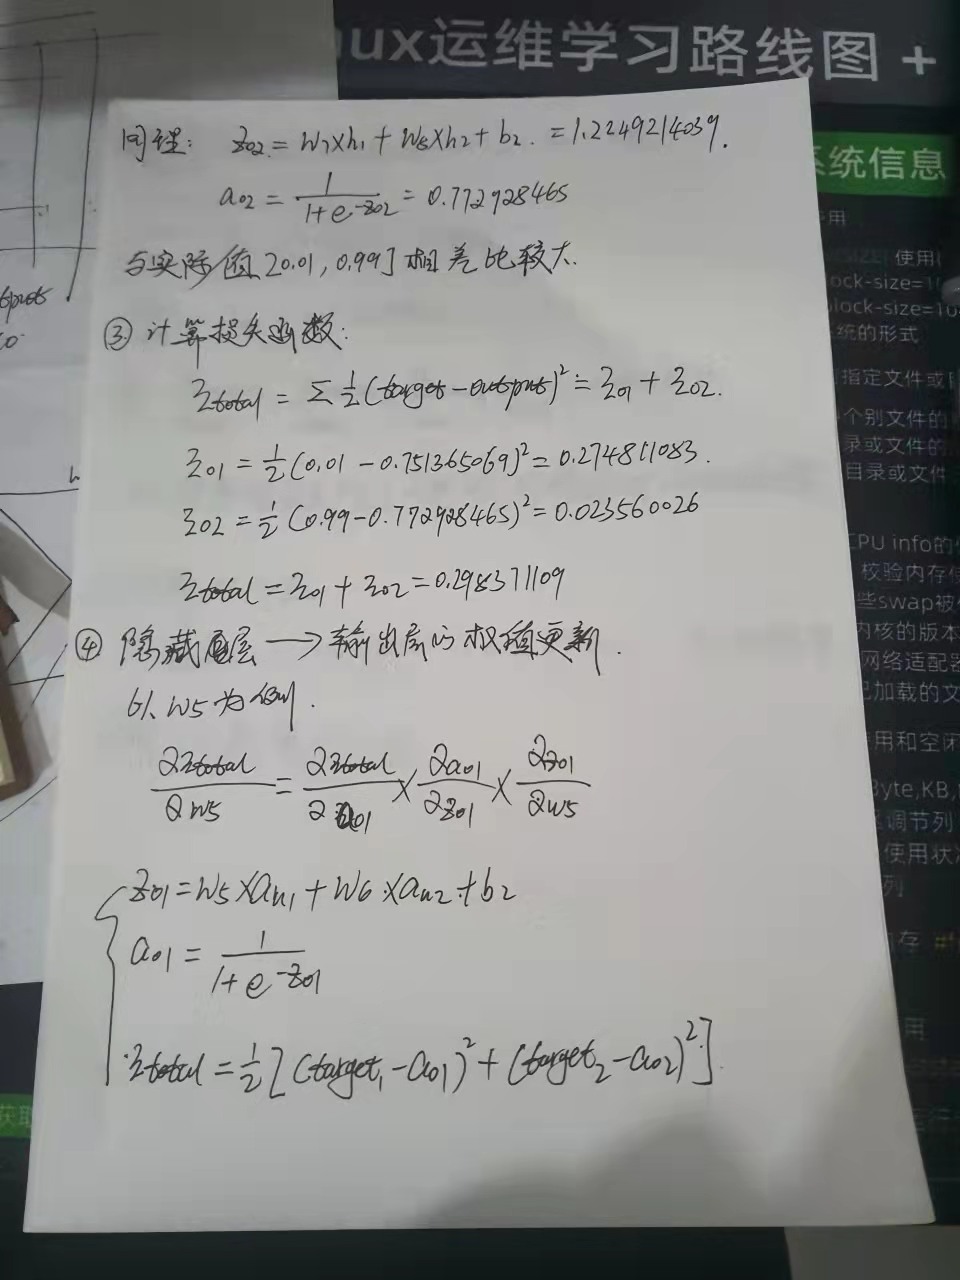 ux运维学习路线图 +
同理: z₀₂ = w₇×h₁ + w₈×h₂ + b₂. = 1.2249214039.
a₀₂ = 1/(1+e^-z₀₂) = 0.772928465
与实际值[0.01, 0.99]相差比较大.
③ 计算损失函数:
Σtotal = Σ½(target-output)² = Σ₀₁ + Σ₀₂.
Σ₀₁ = ½(0.01-0.751365069)² = 0.274811083.
Σ₀₂ = ½(0.99-0.772928465)² = 0.023560026
Σtotal = Σ₀₁ + Σ₀₂ = 0.298371109
④ 隐藏层 → 输出层的权值更新.
以w5为例.
∂Σtotal/∂w5 = ∂Σtotal/∂a₀₁ × ∂a₀₁/∂z₀₁ × ∂z₀₁/∂w5
z₀₁ = w5×aₕ₁ + w6×aₕ₂ + b₂
a₀₁ = 1/(1+e^-z₀₁)
Σtotal = ½[(target₁-a₀₁)² + (target₂-a₀₂)²].
系统信息
使用
ock-size=1
block-size=10
统的形式
指定文件或
个别文件的
录或文件的
目录或文件
CPU info的
校验内存使
些swap被
内核的版本
网络适配器
已加载的文
用和空闲
Byte,KB,
调节列
使用状
列
存
用
获取